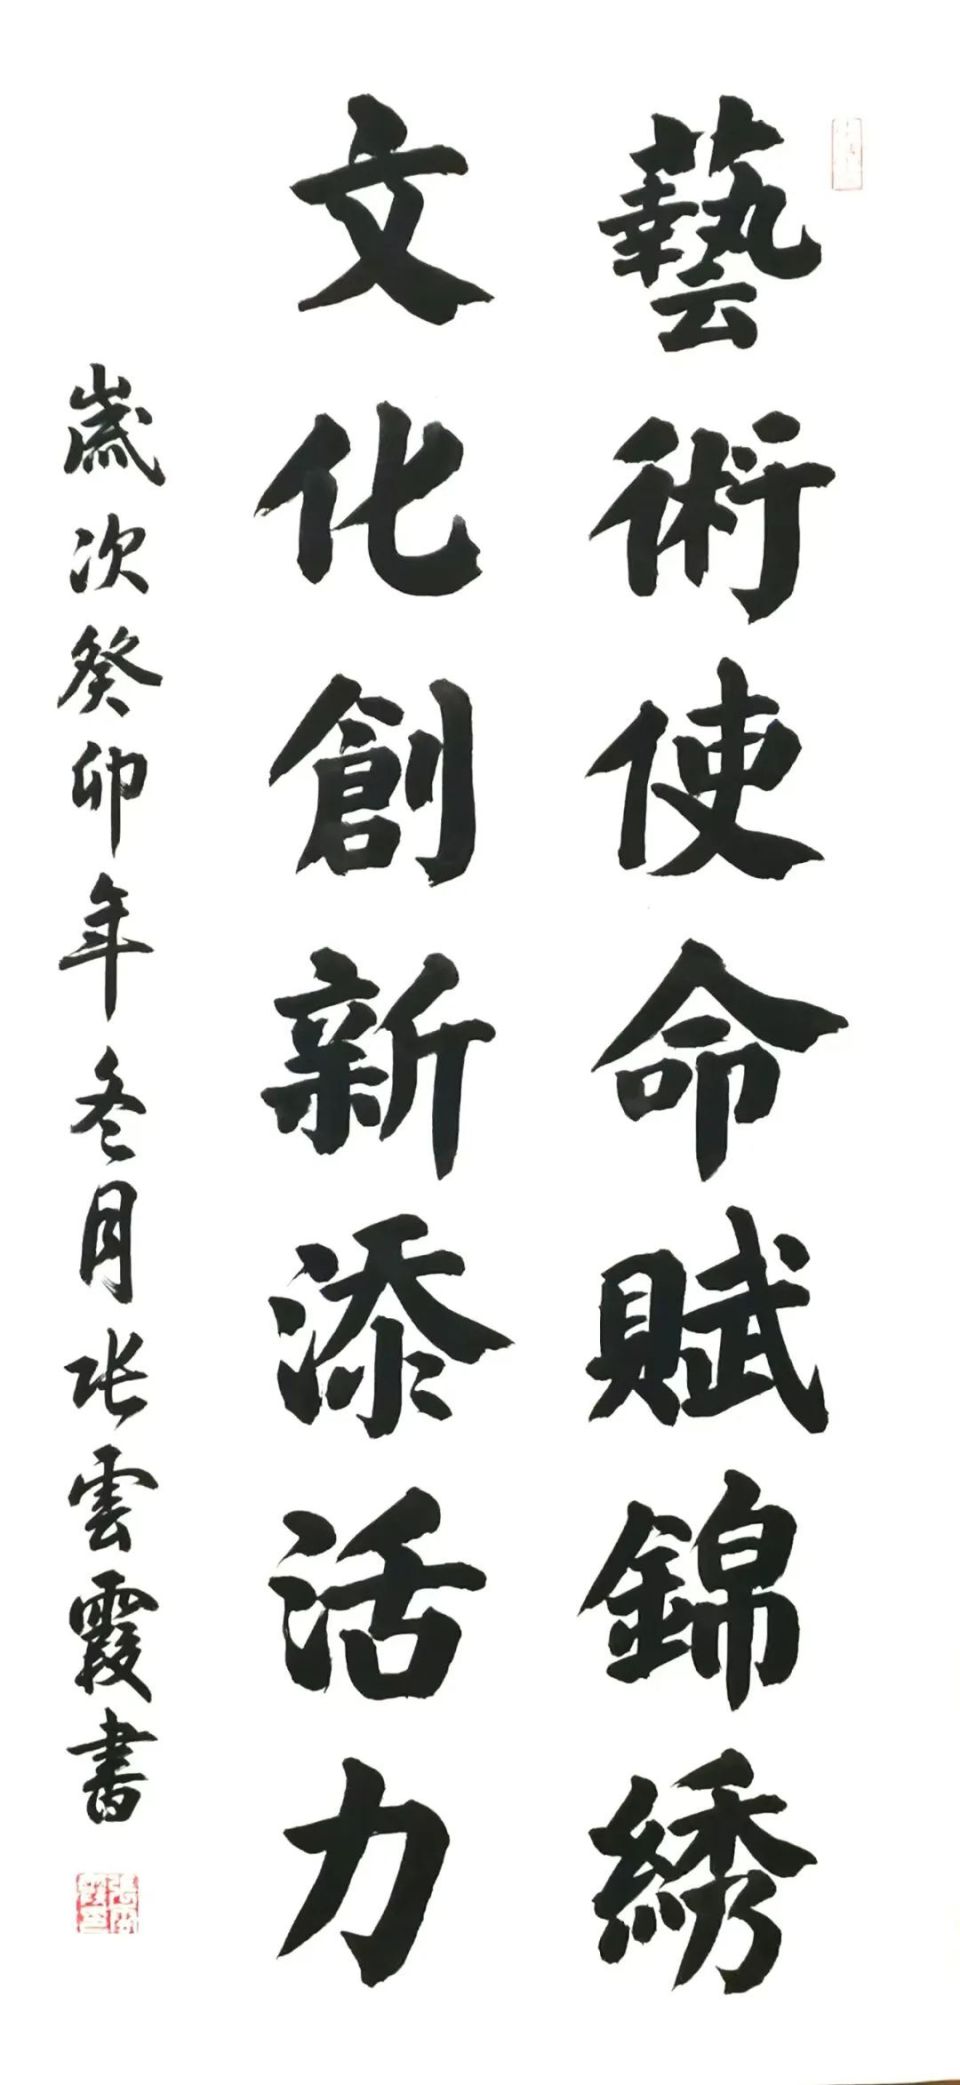 藝術使命賦錦綉
文化創新添活力
歲次癸卯年冬月张雲霞書